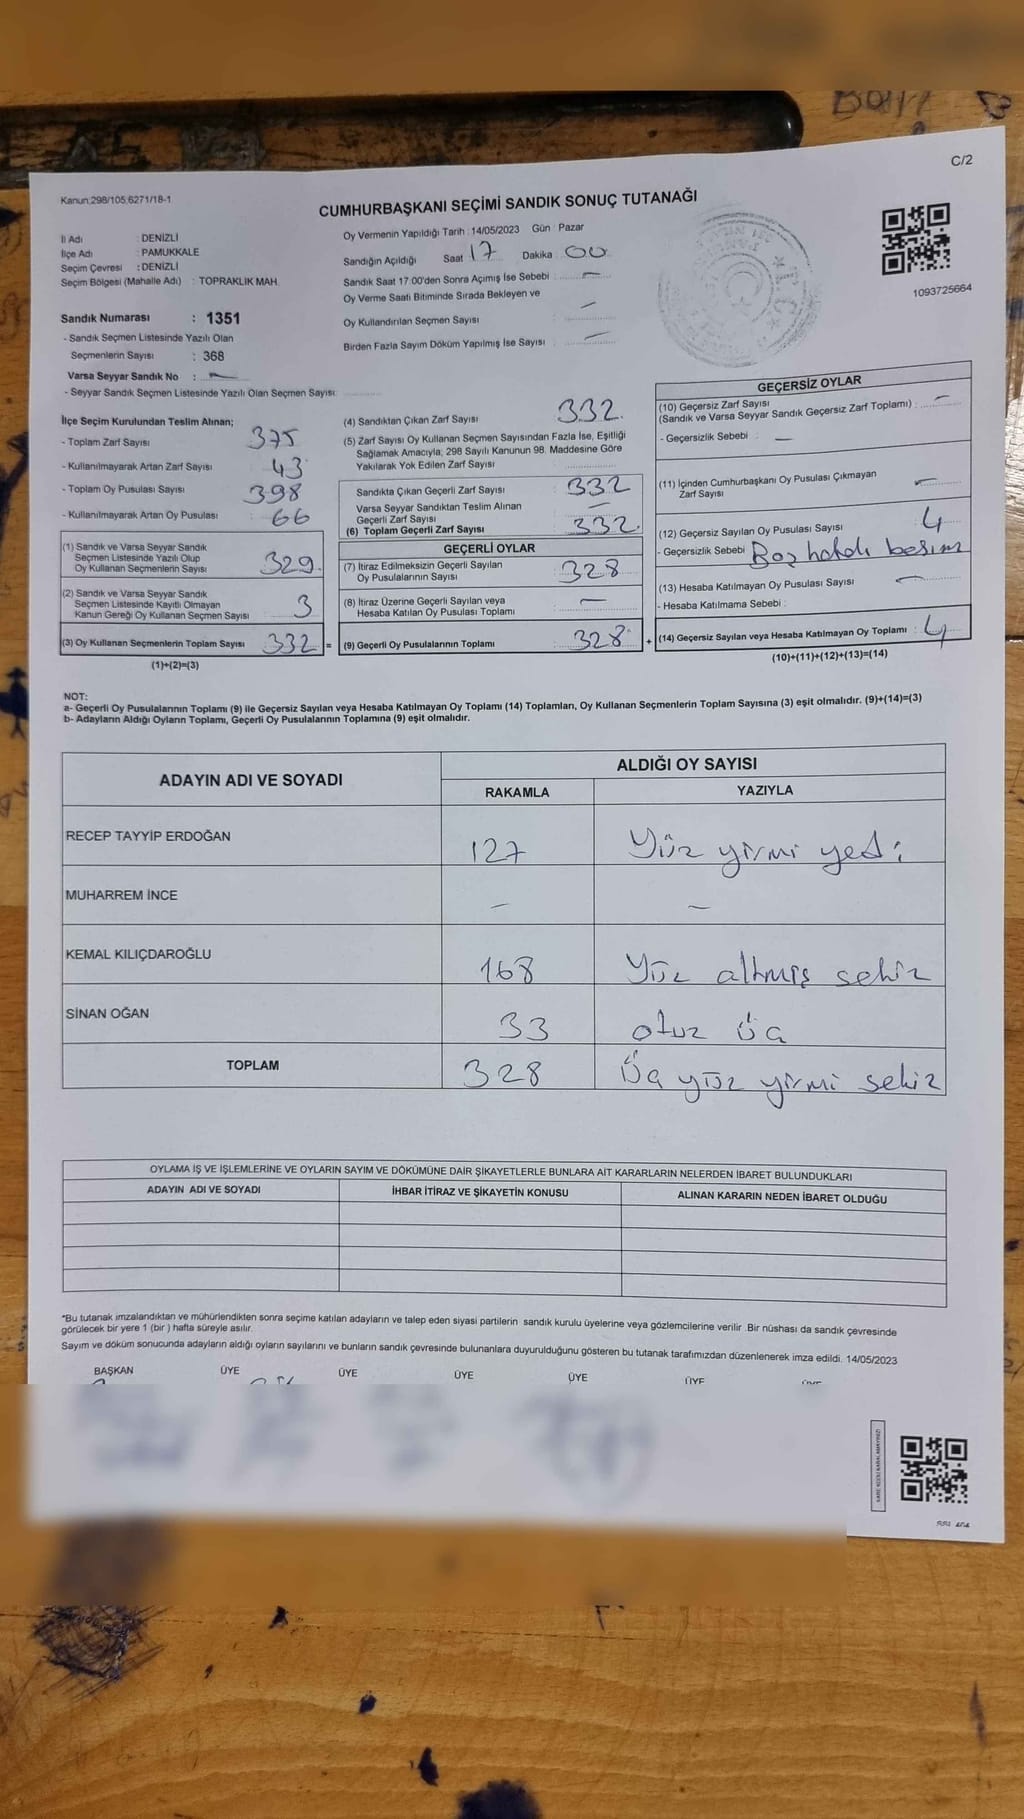 C/2
Kanun:298/105;6271/18-1
CUMHURBAŞKANI SEÇİMİ SANDIK SONUÇ TUTANAĞI
İl Adı : DENİZLİ
İlçe Adı : PAMUKKALE
Seçim Çevresi : DENİZLİ
Seçim Bölgesi (Mahalle Adı) : TOPRAKLIK MAH.
Sandık Numarası : 1351
- Sandık Seçmen Listesinde Yazılı Olan
Seçmenlerin Sayısı : 368
Varsa Seyyar Sandık No : —
- Seyyar Sandık Seçmen Listesinde Yazılı Olan Seçmen Sayısı:
Oy Vermenin Yapıldığı Tarih : 14/05/2023 Gün : Pazar
Sandığın Açıldığı Saat 17 Dakika 00
Sandık Saat 17:00'den Sonra Açımış İse Sebebi : —
Oy Verme Saati Bitiminde Sırada Bekleyen ve
Oy Kullandırılan Seçmen Sayısı : —
Birden Fazla Sayım Döküm Yapılmış İse Sayısı : —
1093725664
İlçe Seçim Kurulundan Teslim Alınan;
- Toplam Zarf Sayısı : 375
- Kullanılmayarak Artan Zarf Sayısı : 43
- Toplam Oy Pusulası Sayısı : 398
- Kullanılmayarak Artan Oy Pusulası : 66
(1) Sandık ve Varsa Seyyar Sandık
Seçmen Listesinde Yazılı Olup
Oy Kullanan Seçmenlerin Sayısı : 329
(2) Sandık ve Varsa Seyyar Sandık
Seçmen Listesinde Kayıtlı Olmayan
Kanun Gereği Oy Kullanan Seçmen Sayısı : 3
(3) Oy Kullanan Seçmenlerin Toplam Sayısı : 332 =
(1)+(2)=(3)
(4) Sandıktan Çıkan Zarf Sayısı : 332
(5) Zarf Sayısı Oy Kullanan Seçmen Sayısından Fazla İse, Eşitliği
Sağlamak Amacıyla; 298 Sayılı Kanunun 98. Maddesine Göre
Yakılarak Yok Edilen Zarf Sayısı :
Sandıkta Çıkan Geçerli Zarf Sayısı : 332
Varsa Seyyar Sandıktan Teslim Alınan
Geçerli Zarf Sayısı : —
(6) Toplam Geçerli Zarf Sayısı : 332
GEÇERLİ OYLAR
(7) İtiraz Edilmeksizin Geçerli Sayılan
Oy Pusulalarının Sayısı : 328
(8) İtiraz Üzerine Geçerli Sayılan veya
Hesaba Katılan Oy Pusulası Toplamı : —
(9) Geçerli Oy Pusulalarının Toplamı : 328 +
GEÇERSİZ OYLAR
(10) Geçersiz Zarf Sayısı
(Sandık ve Varsa Seyyar Sandık Geçersiz Zarf Toplamı) : —
- Geçersizlik Sebebi : —
(11) İçinden Cumhurbaşkanı Oy Pusulası Çıkmayan
Zarf Sayısı : —
(12) Geçersiz Sayılan Oy Pusulası Sayısı : 4
- Geçersizlik Sebebi :
(13) Hesaba Katılmayan Oy Pusulası Sayısı : —
- Hesaba Katılmama Sebebi :
(14) Geçersiz Sayılan veya Hesaba Katılmayan Oy Toplamı : 4
(10)+(11)+(12)+(13)=(14)
NOT:
a- Geçerli Oy Pusulalarının Toplamı (9) ile Geçersiz Sayılan veya Hesaba Katılmayan Oy Toplamı (14) Toplamları, Oy Kullanan Seçmenlerin Toplam Sayısına (3) eşit olmalıdır. (9)+(14)=(3)
b- Adayların Aldığı Oyların Toplamı, Geçerli Oy Pusulalarının Toplamına (9) eşit olmalıdır.
ADAYIN ADI VE SOYADI ALDIĞI OY SAYISI
RAKAMLA YAZIYLA
RECEP TAYYİP ERDOĞAN 127 Yüz yirmi yedi
MUHARREM İNCE — —
KEMAL KILIÇDAROĞLU 168 Yüz altmış sekiz
SİNAN OĞAN 33 otuz üç
TOPLAM 328 Üç yüz yirmi sekiz
OYLAMA İŞ VE İŞLEMLERİNE VE OYLARIN SAYIM VE DÖKÜMÜNE DAİR ŞİKAYETLERLE BUNLARA AİT KARARLARIN NELERDEN İBARET BULUNDUKLARI
ADAYIN ADI VE SOYADI İHBAR İTİRAZ VE ŞİKAYETİN KONUSU ALINAN KARARIN NEDEN İBARET OLDUĞU
*Bu tutanak imzalandıktan ve mühürlendikten sonra seçime katılan adayların ve talep eden siyasi partilerin sandık kurulu üyelerine veya gözlemcilerine verilir .Bir nüshası da sandık çevresinde
görülecek bir yere 1 (bir ) hafta süreyle asılır.
Sayım ve döküm sonucunda adayların aldığı oyların sayılarını ve bunların sandık çevresinde bulunanlara duyurulduğunu gösteren bu tutanak tarafımızdan düzenlenerek imza edildi. 14/05/2023
BAŞKAN ÜYE ÜYE ÜYE ÜYE ÜYE